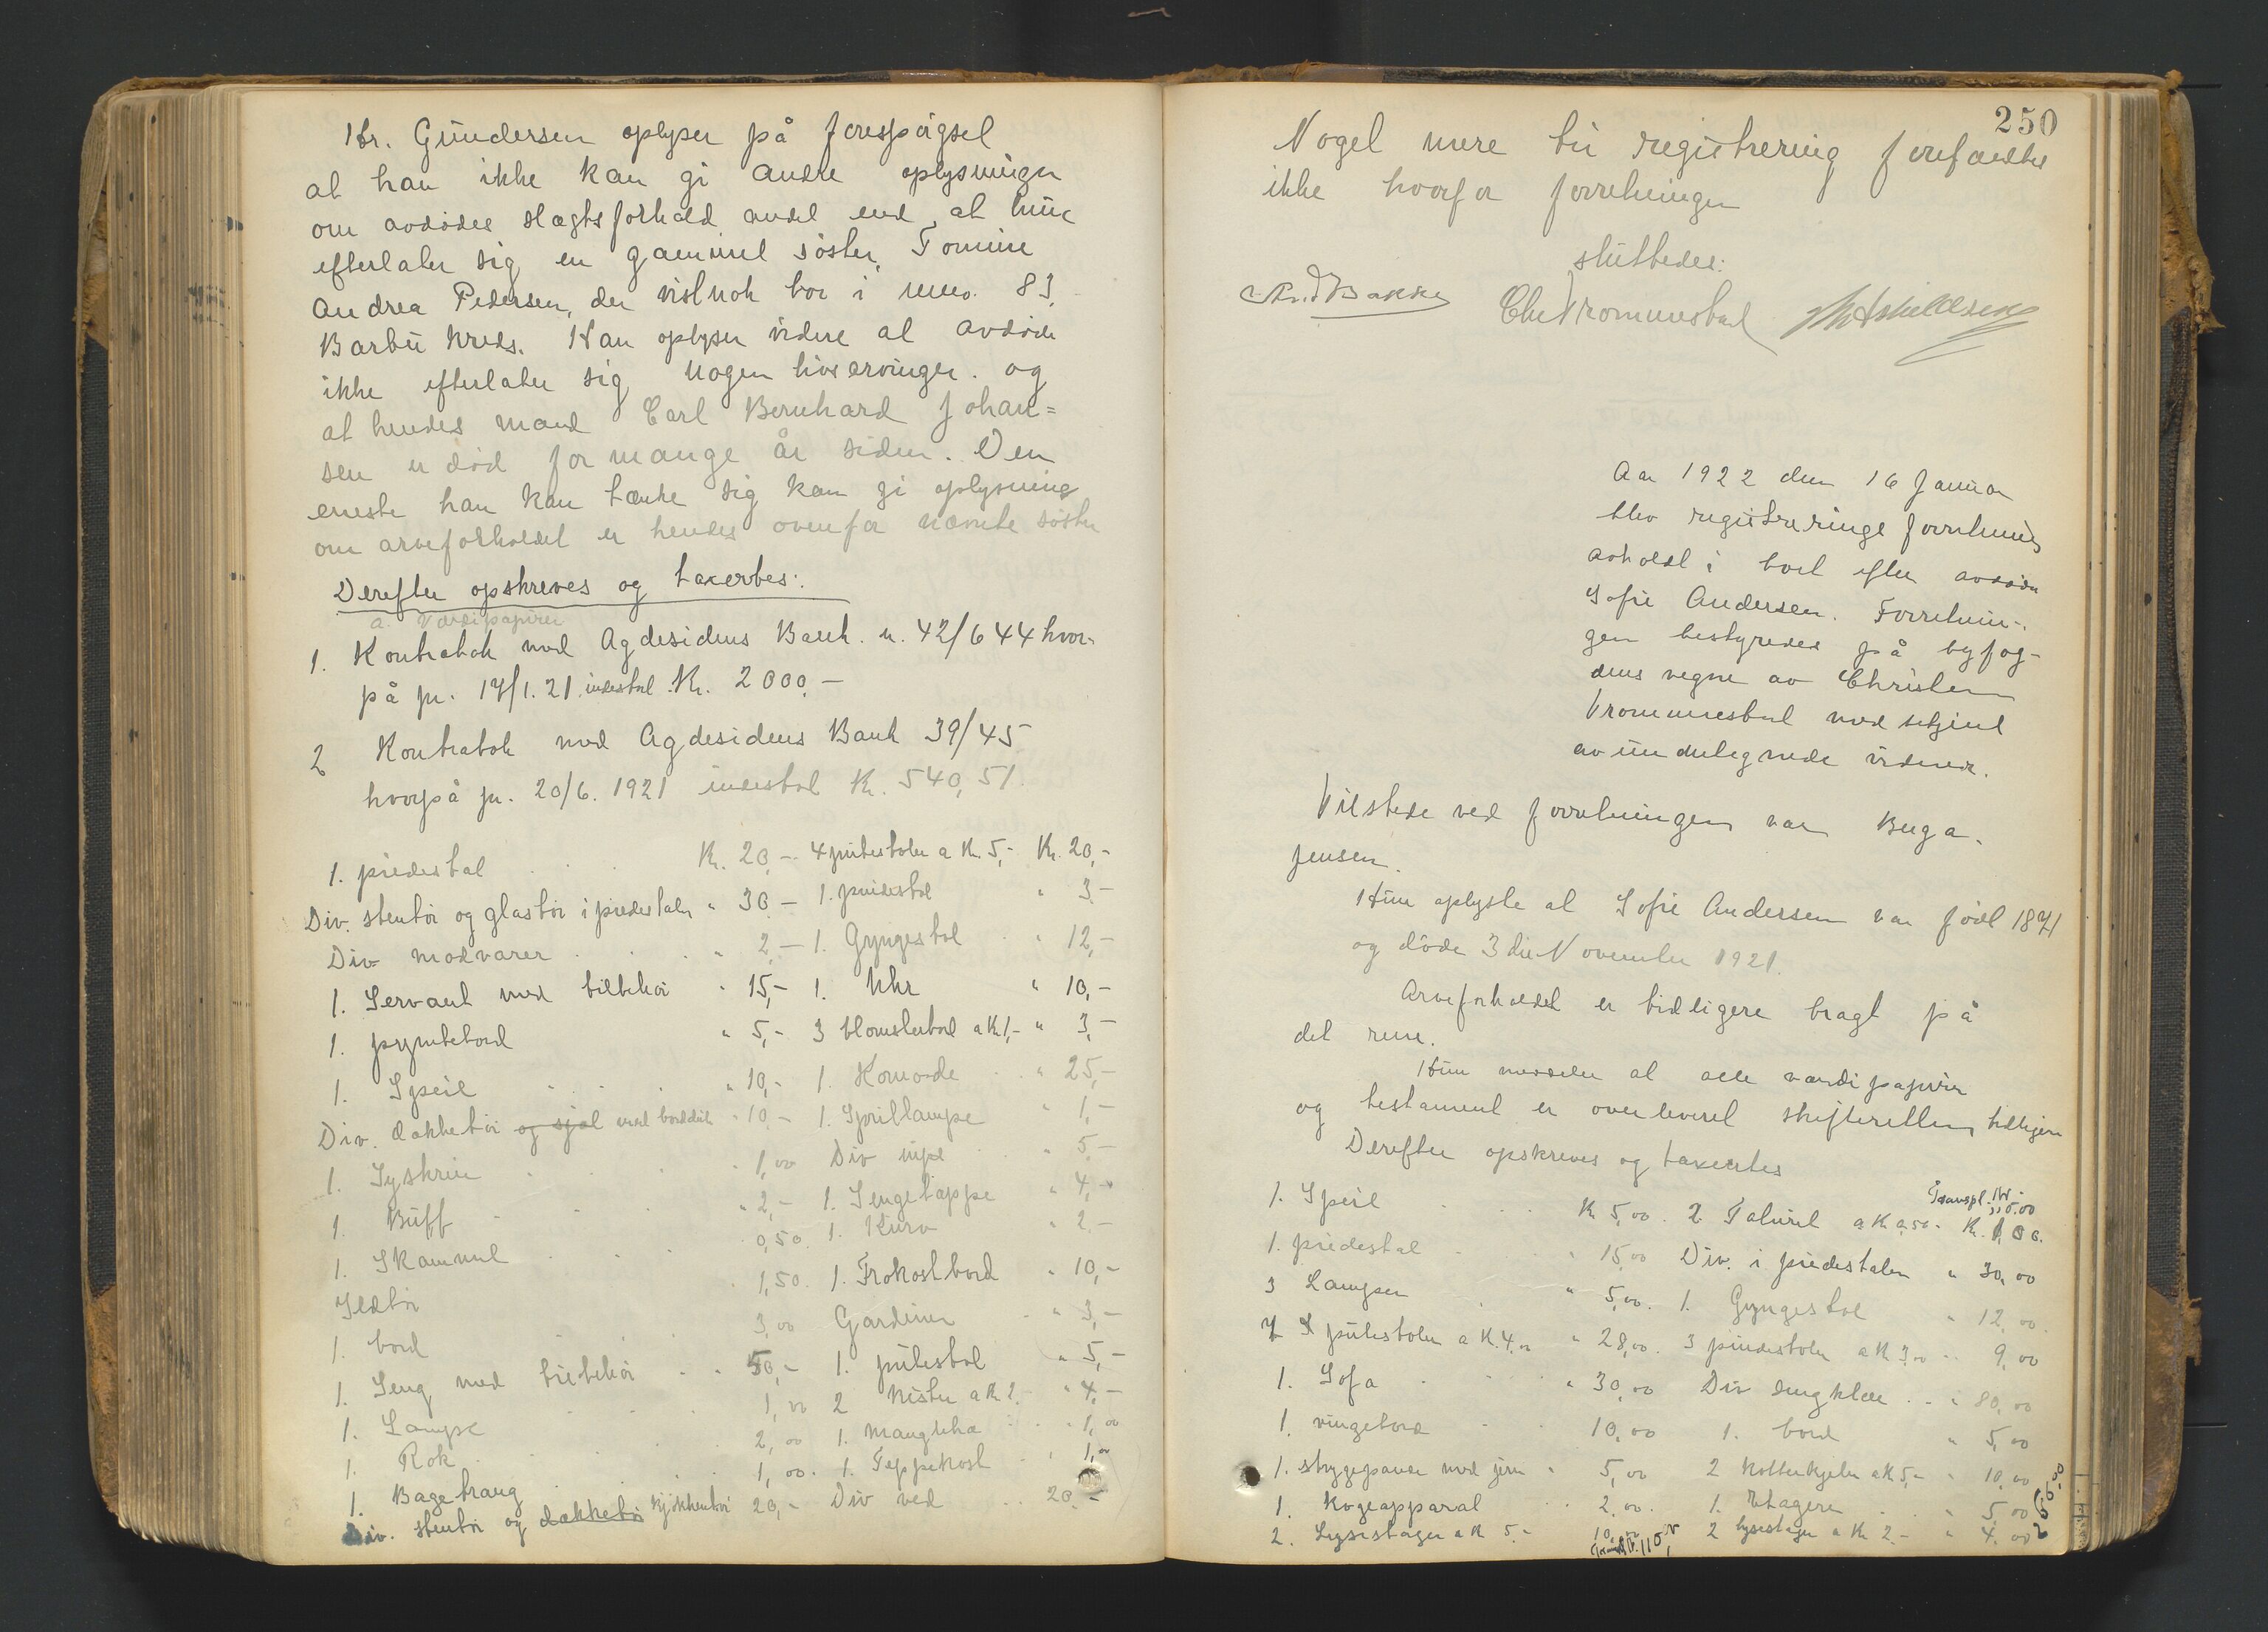 Hr. Gundersen oplyser på forespørgsel
at han ikke kan gi andre oplysninger
om avdødes slægtsforhold andet end at hun
efterlater sig en gammel søster, Tomine
Andrea Pedersen, der vistnok bor i mno. 83
Barbu kreds. Han oplyser videre at avdøde
ikke efterlater sig nogen livsarvinger og
at hendes mand Carl Bernhard Johan=
sen er død for mange år siden. Den
eneste han kan tænke sig kan gi oplysning
om arveforholdet er hendes ovenfor nævnte søster
Derefter opskreves og taxertes:
a. Værdipapirer
1. Kontrabok med Agdesidens Bank n. 42/644 hvor-
på pr. 17/1.21 indestod Kr. 2000,-
2 Kontrabok med Agdesidens Bank 39/45
hvorpå pr. 20/6. 1921 indestod Kr. 540,51
1. piedestal Kr. 20,- 4 putestoler a Kr. 5,- Kr. 20,-
Div. stentøi og glastøi i piedestalen " 30,- 1. pindestol " 3,-
Div matvarer " 2,- 1. Gyngestol " 12,-
1. Servant med tilbehør " 15,- 1. Uhr " 10,-
1. pyntebord " 5,- 3 blomsterbord a Kr 1,- " 3,-
1. Speil " 10,- 1. Komode " 25,-
Div. dækketøi og sjal med bordduk " 10,- 1. Sprillampe " 1,-
1. Syskrin " 1,00 Div 5,-
1. Buff " 2,- 1. Sengetæppe " 4,-
1. Skammel 0,50 1. Kurv " 2,-
Ildtøi 1,50 1. Frokostbord " 10,-
1. bord 3,00 Gardiner " 3,-
1. Seng med tilbehør " 50,- 1. putestol " 5,-
1. Lampe 1,00 2 Kister a Kr 2,- " 4,-
1. Rok 2,00 1. " 1,00
1. Bagetraug 1,00 1. Teppekost " 1,00
Div. stentøi og dækketøi kjøkkentøi 20,- Div ved 20,-
250
Noget mere til registrering forefandtes
ikke hvorfor forretningen
sluttedes:
Chr Trommestad
Aar 1922 den 16 Januar
blev registreringsforretning
avholdt i boet efter avdøde
Sofie Andersen. Forretnin-
gen bestyredes på byfog-
dens vegne av Christen
Trommestad med vitjent
av undertegnede vidner.
Tilstede ved forretningen var
Jensen.
Hun oplyste at Sofie Andersen var født 1841
og døde 3die November 1921.
Arveforholdet er tidligere bragt på
det rene.
Hun meddeler at alle værdipapirer
og testament er overleveret skifteretten tidligere
Derefter opskreves og taxertes
Transpt. Kr. 110.00
1. Speil Kr 5,00. 2 Taburet a Kr 0,50 Kr. 1,00.
1. piedestal " 15,00 Div. i piedestalen " 30,00
3 Lamper " 5,00. 1. Gyngestol " 12,00.
7 putestoler a K. 4,00 " 28,00. 3 pindestoler a K 3,00 " 9,00
1. Sofa " 30,00 Div sengklær " 80,00
1. vingebord 10,00 1. bord " 5,00
1. strygepande med jern " 5,00 2 kobberkjeler a K 5,- " 10,00
1 Kogeapparat 2,00. 1. Etagere " 5,00
2. Lysestager a K 5,- 10,00 2 lysestager a Kr 2,- " 4,00
Transpt. Kr. 110,00
266,00